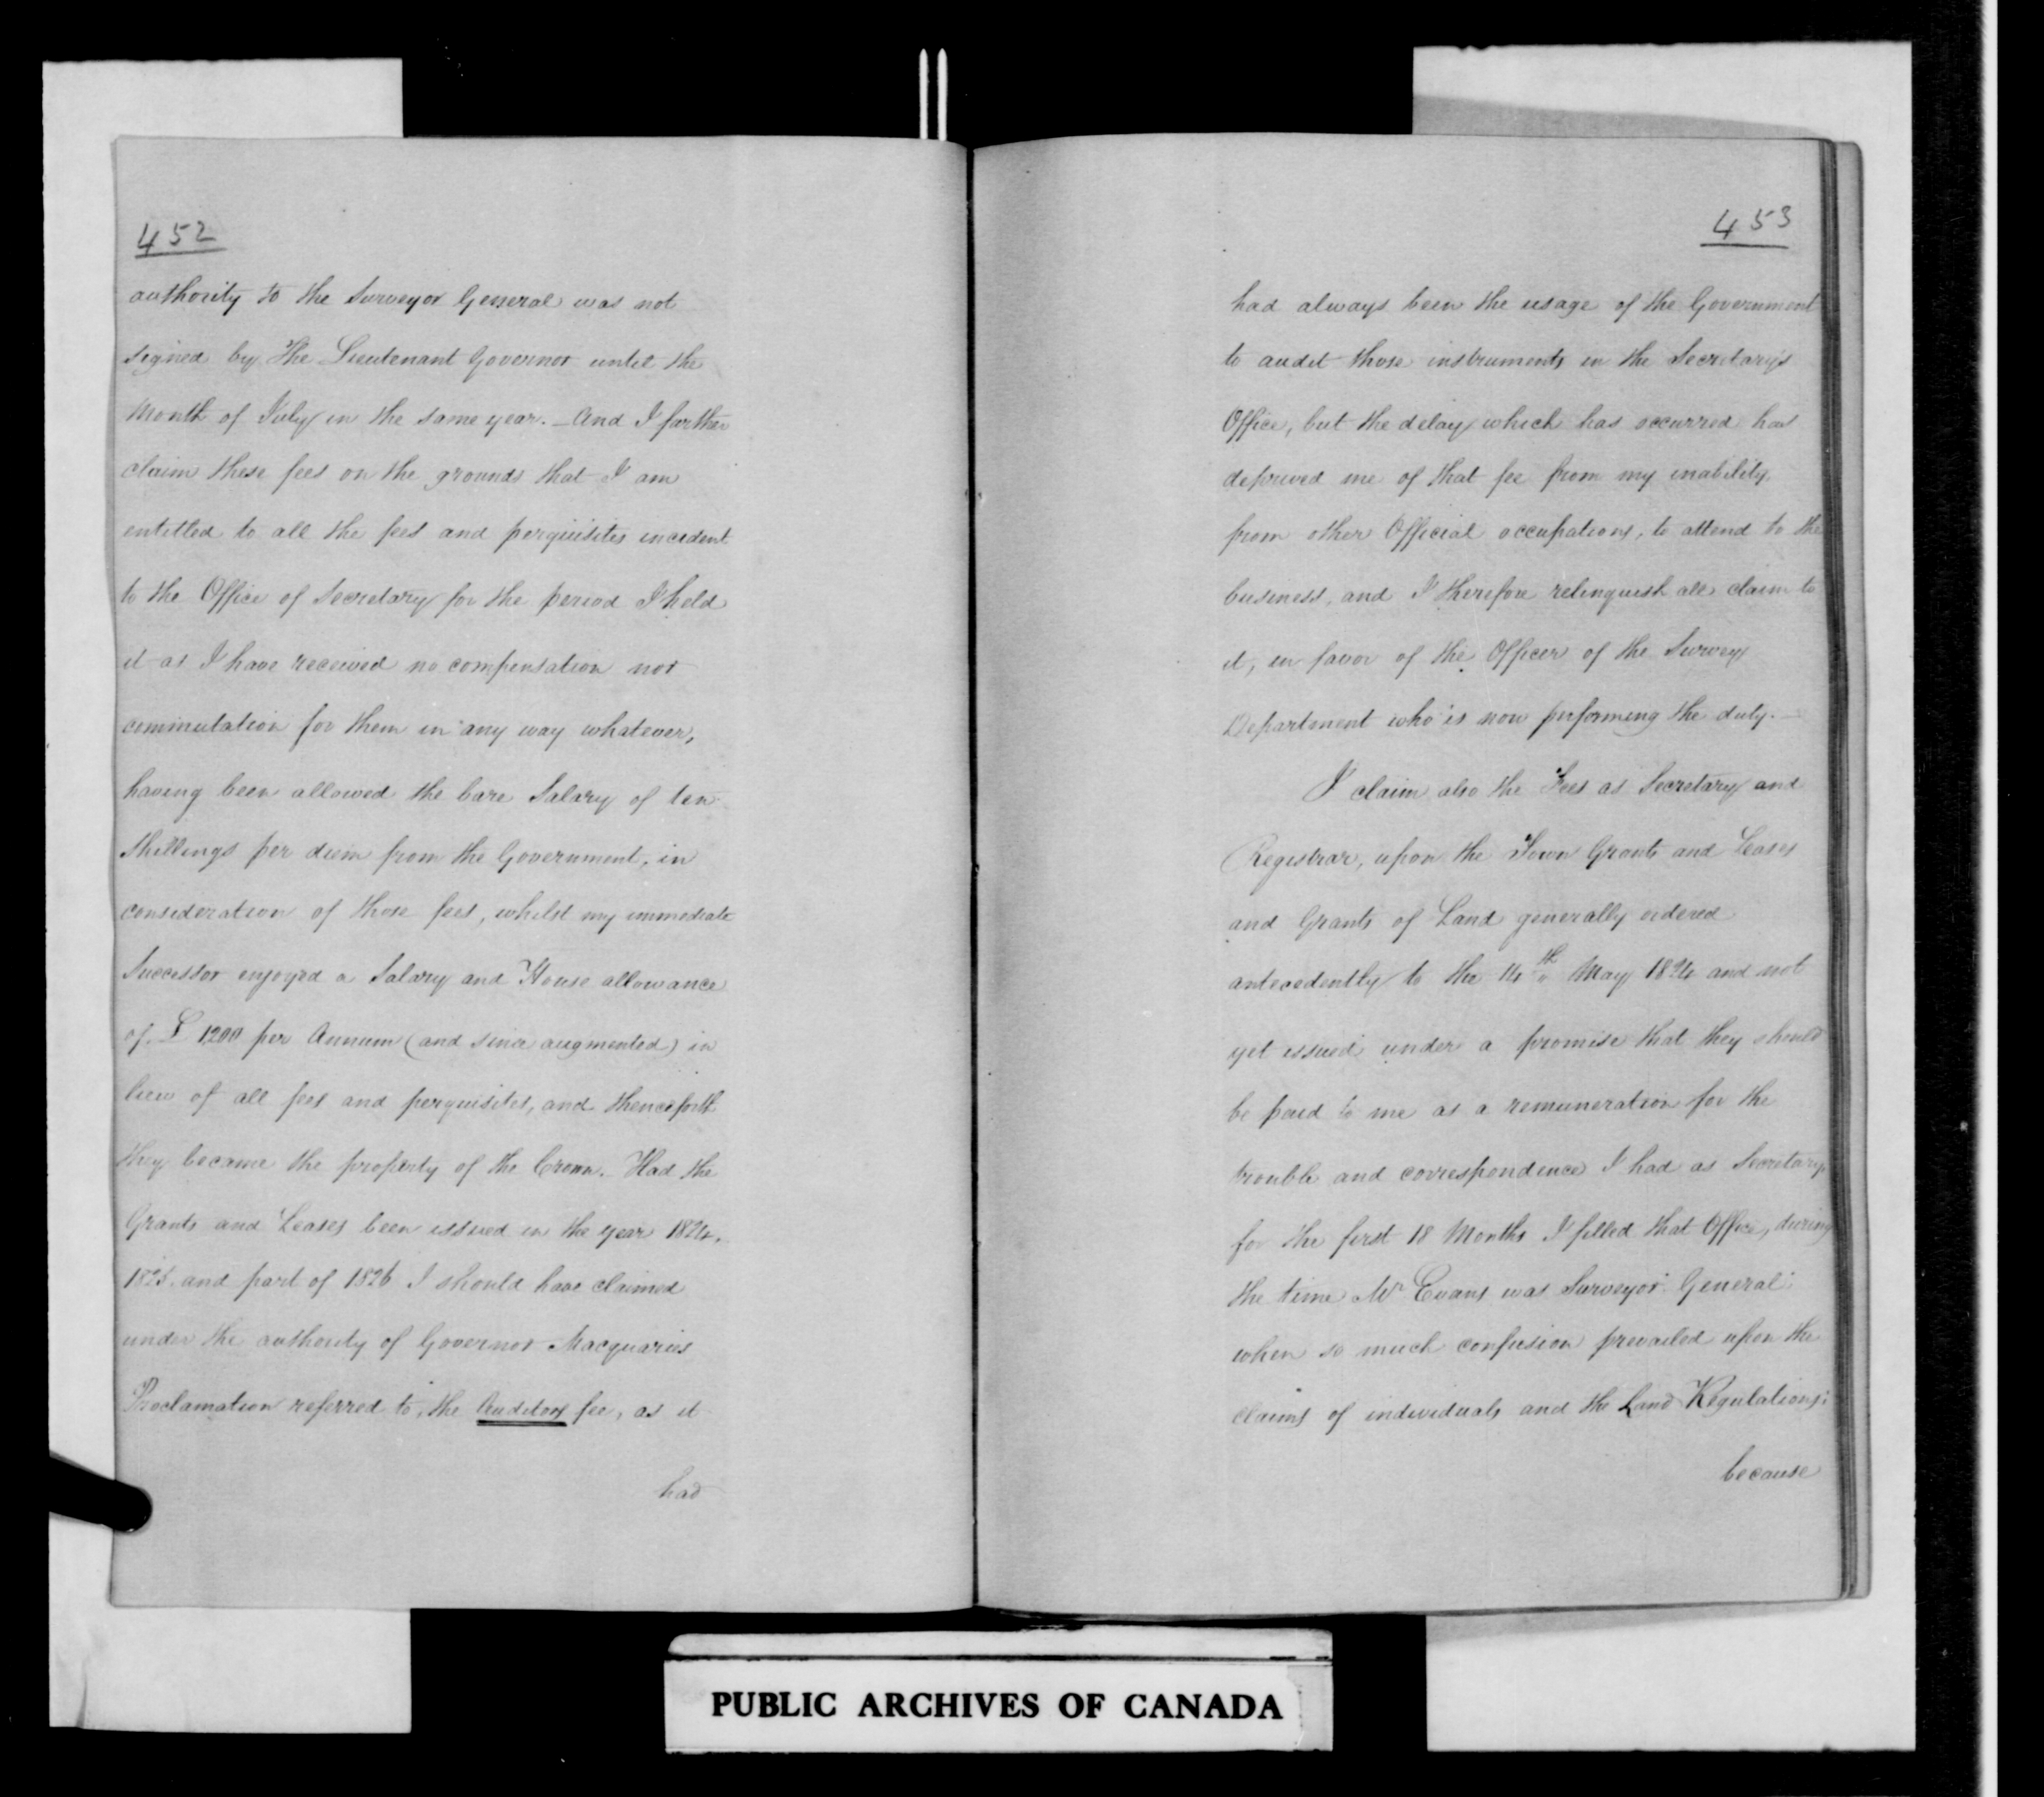 452
authority to the Surveyor General was not
signed by The Lieutenant Governor until the
Month of July in the same year. - And I further
claim these fees on the grounds that I am
entitled to all the fees and perquisites incident
to the Office of Secretary for the period I held
it as I have received no compensation nor
commutation for them in any way whatever,
having been allowed the bare Salary of ten
Shillings per diem from the Government, in
consideration of those fees, whilst my immediate
Successor enjoyed a Salary and House allowance
of £1200 per Annum (and since augmented) in
lieu of all fees and perquisites, and thenceforth
they became the property of the Crown. Had the
Grants and Leases been issued in the year 1824,
1825. and part of 1826 I should have claimed
under the authority of Governor Macquaries
Proclamation referred to, the Auditory fee, as it
had
453
had always been the usage of the Government
to audit those instruments in the Secretary's
Office, but the delay which has occurred has
deprived me of that fee from my inability
from other Official occupations, to attend to the
business, and I therefore relinquish all claim to
it, in favor of the Officer of the Survey
Department who is now performing the duty. -
I claim also the Fees as Secretary and
Registrar, upon the Town Grants and Leases
and Grants of Land generally ordered
antecedently to the 14th May 1824 and not
yet issued under a promise that they should
be paid to me as a remuneration for the
trouble and correspondence I had as Secretary
for the first 18 Months I filled that Office, during
the time Mr Evans was Surveyor General
when so much confusion prevailed upon the
claims of individuals and the Land Regulations;
because
PUBLIC ARCHIVES OF CANADA